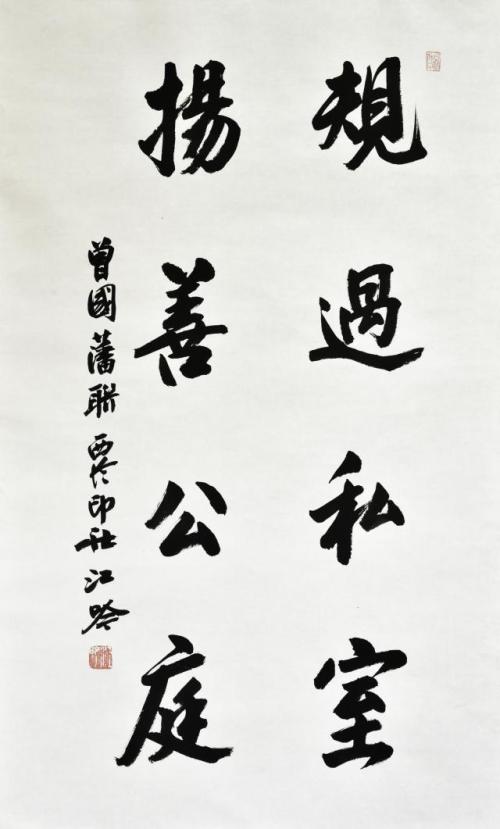 規過私室
揚善公庭
曾國藩聯 西泠印社江吟